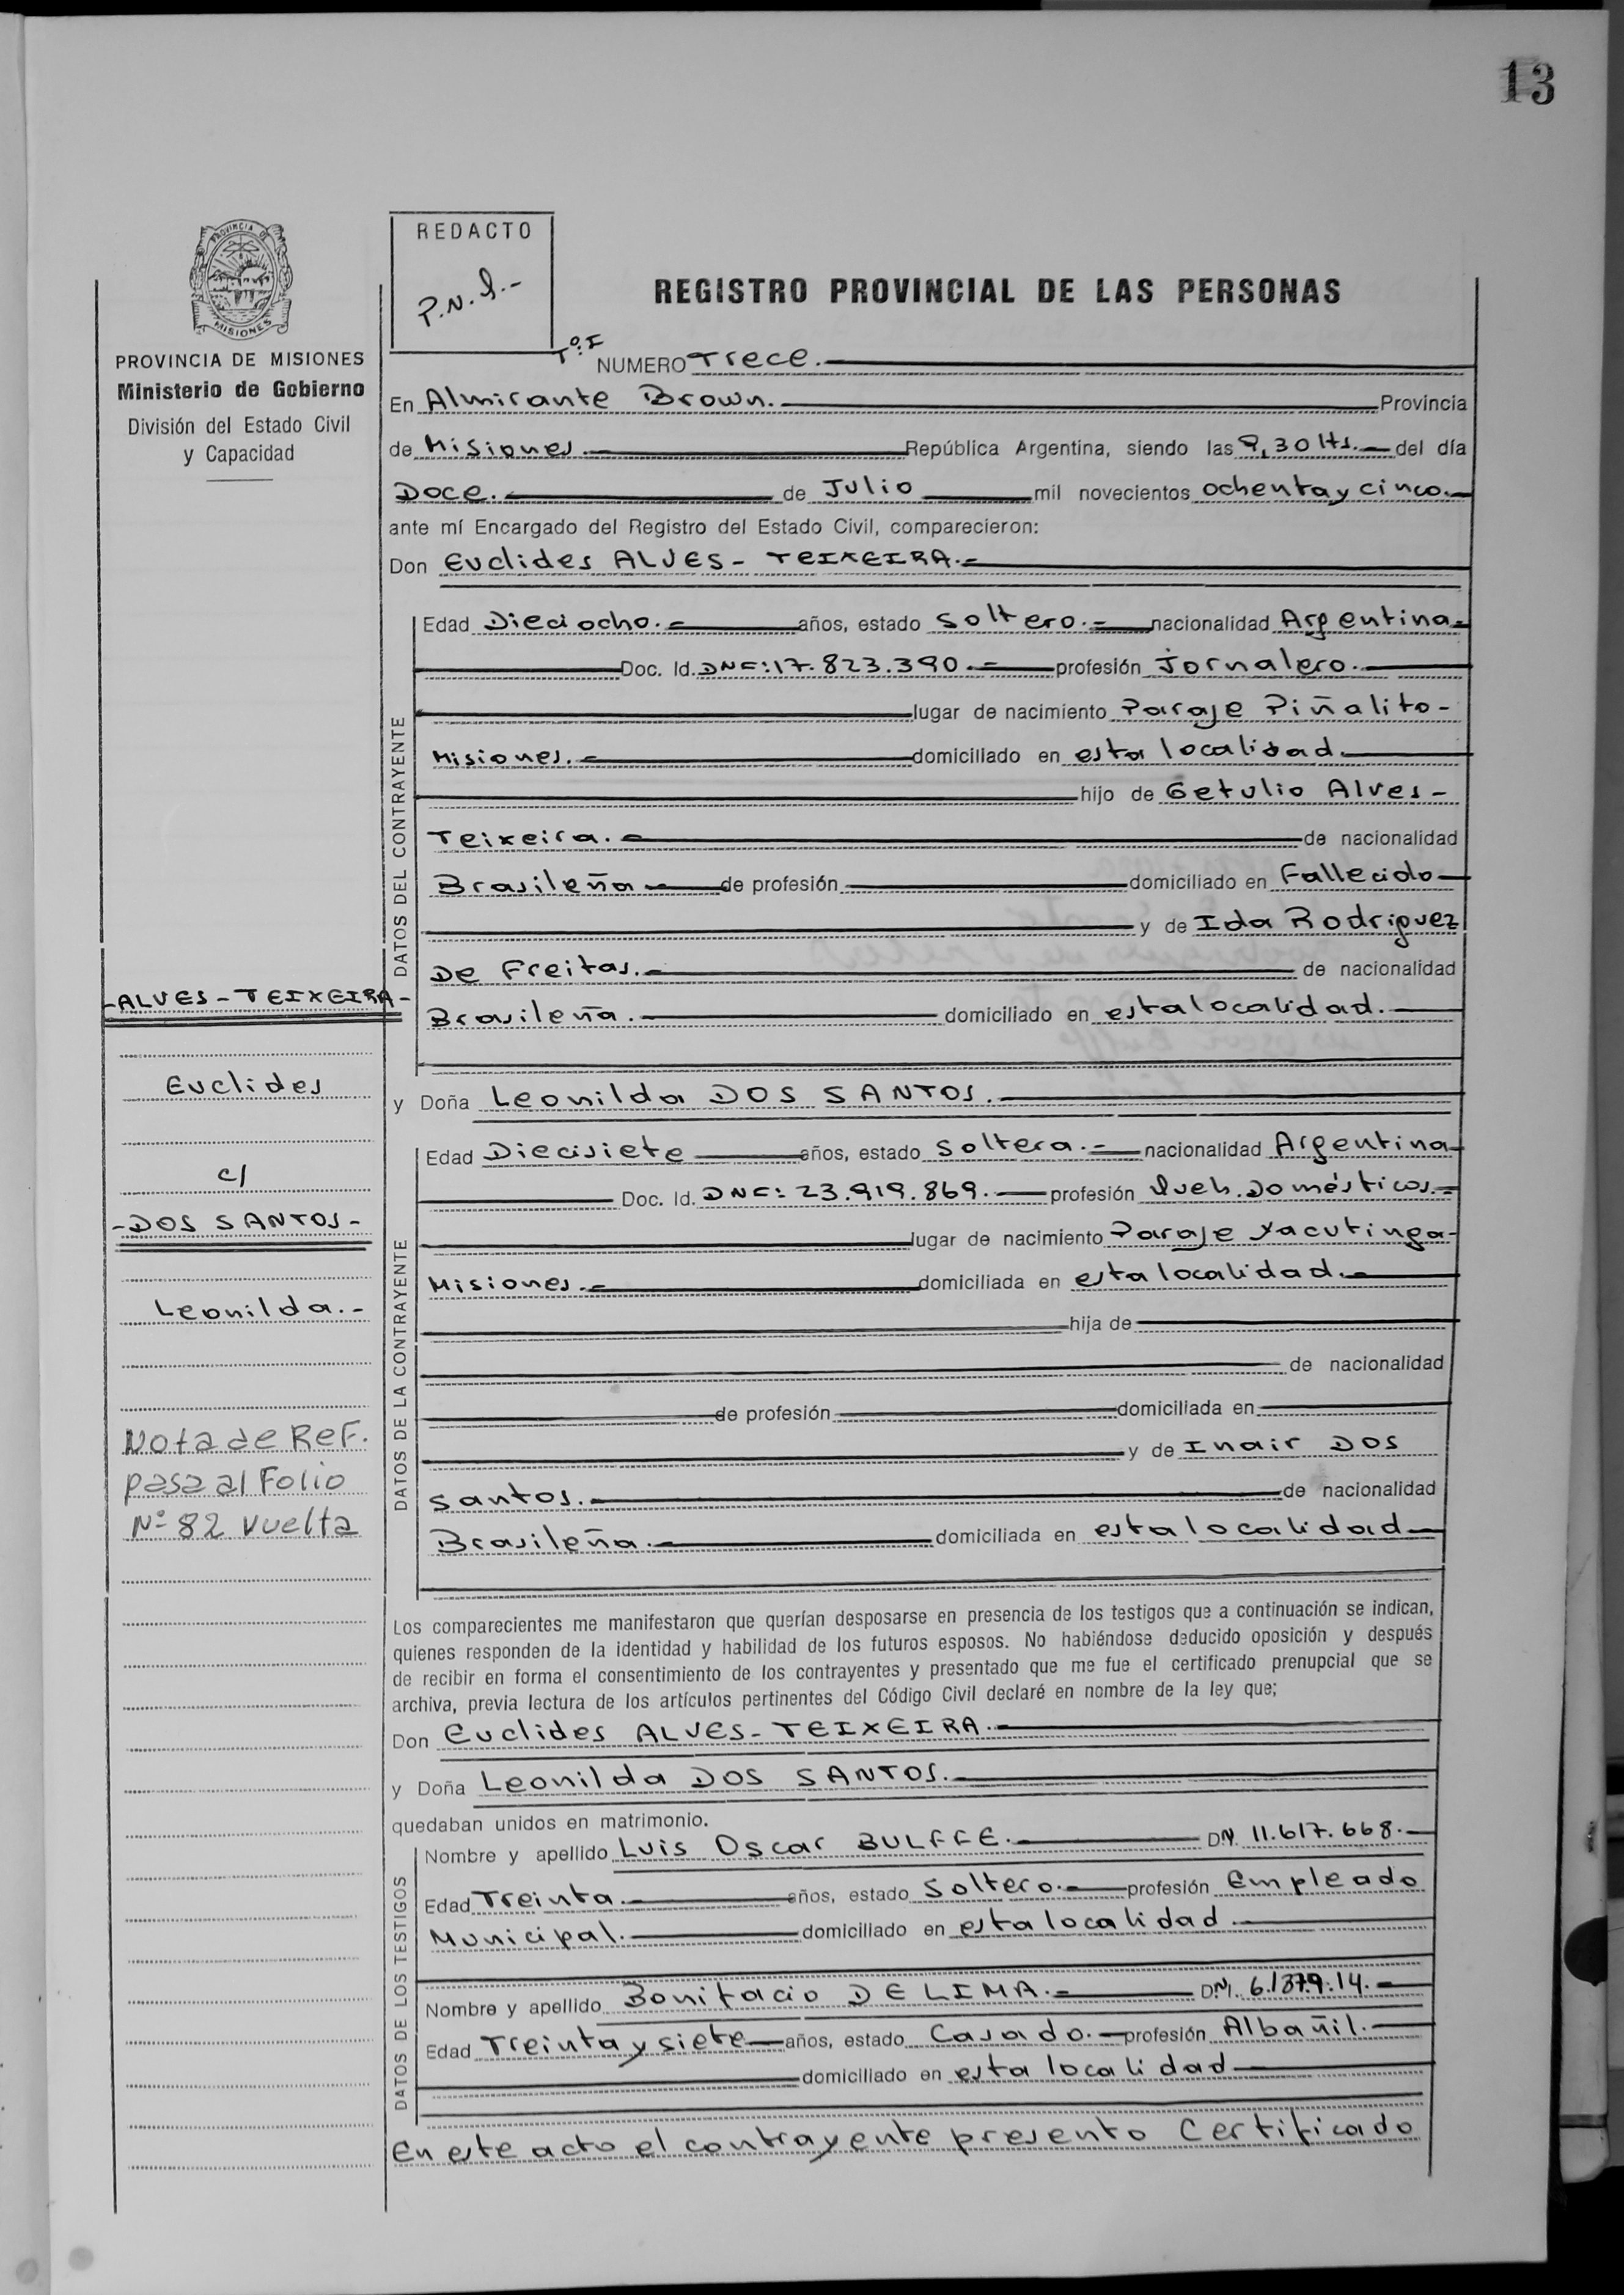 13
PROVINCIA DE MISIONES
PROVINCIA DE MISIONES
Ministerio de Gobierno
División del Estado Civil
y Capacidad
REDACTO
REGISTRO PROVINCIAL DE LAS PERSONAS
Tº:I NUMERO Trece.
En Almirante Brown. Provincia
de Misiones. República Argentina, siendo las 9,30 Hs. del día
Doce. de Julio mil novecientos ochenta y cinco.
ante mí Encargado del Registro del Estado Civil, comparecieron:
Don Euclides ALVES - TEIXEIRA.-
DATOS DEL CONTRAYENTE
Edad Dieciocho.- años, estado Soltero.- nacionalidad Argentina
Doc. Id. DNI: 17.823.390.- profesión Jornalero.
lugar de nacimiento Paraje Piñalito-
Misiones.- domiciliado en esta localidad.
hijo de Getulio Alves-
Teixeira.- de nacionalidad
Brasileña de profesión domiciliado en Fallecido
y de Ida Rodriguez
De Freitas.- de nacionalidad
Brasileña. domiciliado en esta localidad.
-ALVES - TEIXEIRA-
Euclides
c/
-DOS SANTOS-
Leonilda.-
Nota de Ref.
pasa al Folio
Nº 82 vuelta
y Doña Leonilda DOS SANTOS.
DATOS DE LA CONTRAYENTE
Edad Diecisiete años, estado Soltera.- nacionalidad Argentina
Doc. Id. DNI: 23.919.869. profesión Queh. Domésticos.-
lugar de nacimiento Paraje Yacutinga-
Misiones.- domiciliada en esta localidad.
hija de
de nacionalidad
de profesión domiciliada en
y de Inair DOS
Santos. de nacionalidad
Brasileña. domiciliada en esta localidad
Los comparecientes me manifestaron que querían desposarse en presencia de los testigos que a continuación se indican,
quienes responden de la identidad y habilidad de los futuros esposos. No habiéndose deducido oposición y después
de recibir en forma el consentimiento de los contrayentes y presentado que me fue el certificado prenupcial que se
archiva, previa lectura de los artículos pertinentes del Código Civil declaré en nombre de la ley que;
Don Euclides ALVES - TEIXEIRA.
y Doña Leonilda DOS SANTOS.
quedaban unidos en matrimonio.
DATOS DE LOS TESTIGOS
Nombre y apellido Luis Oscar BULFFE. DNI. 11.617.668.
Edad Treinta. años, estado Soltero. profesión Empleado
Municipal. domiciliado en esta localidad.
Nombre y apellido Bonifacio DE LIMA.- DNI.
Edad Treinta y siete años, estado Casado. profesión Albañil.
domiciliado en esta localidad
En este acto el contrayente presento Certificado